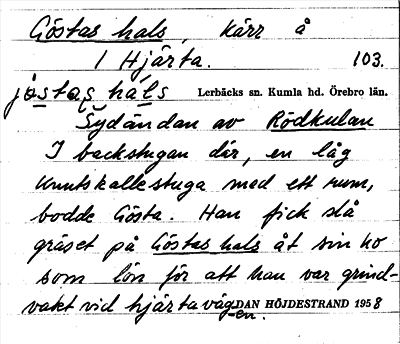 Göstas hals, kärr å
1 Hjärta. 103.
jös̲tas̲ ha̲ls Lerbäcks sn. Kumla hd. Örebro län.
Sydändan av Rödkulan
I backstugan där, en låg
Knutskallestuga med ett rum,
bodde Gösta. Han fick slå
gräset på Göstas hals åt sin ko
som lön för att han var grind-
vakt vid hjärtavägen. DAN HÖJDESTRAND 1958